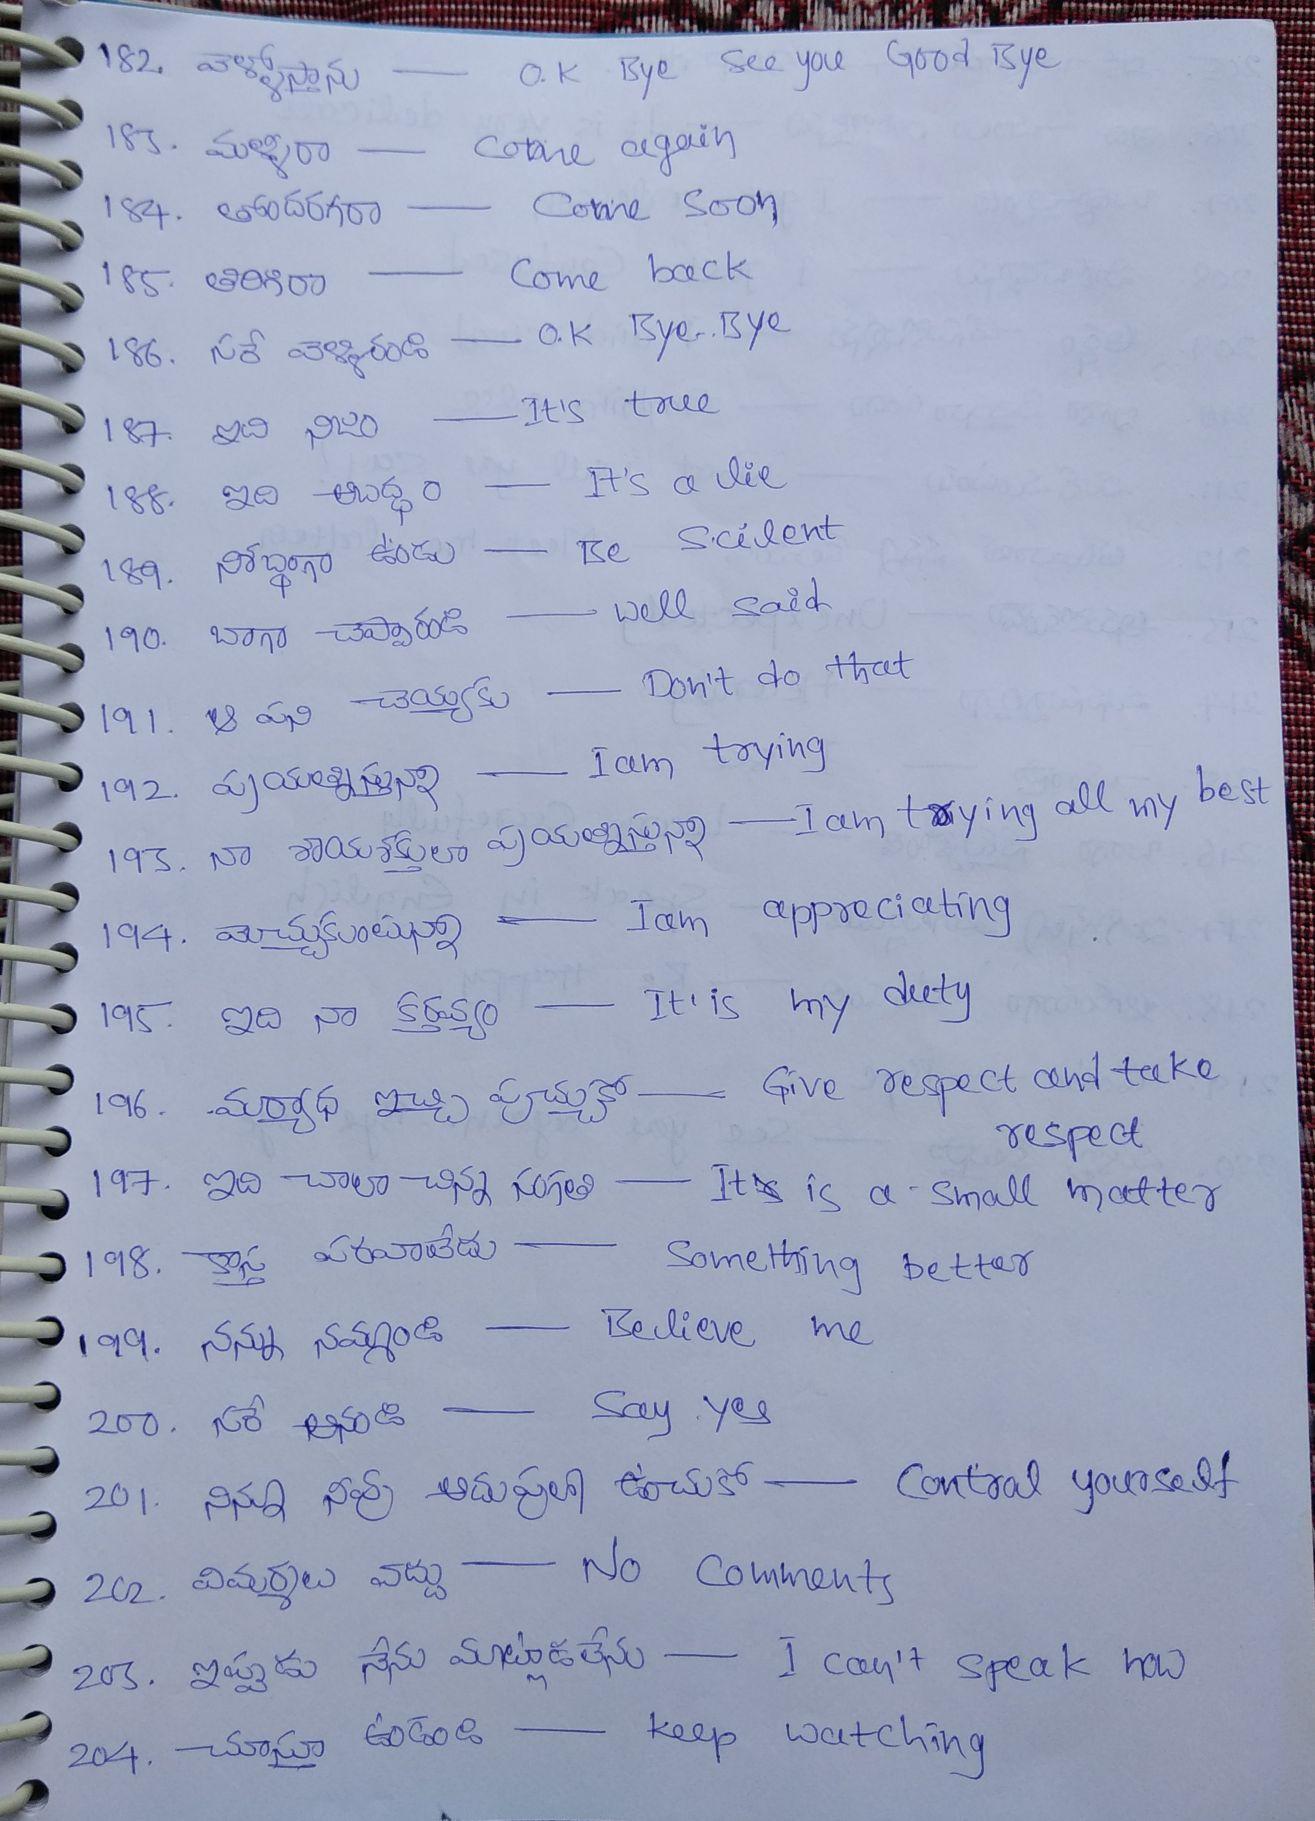 182. వెళ్ళొస్తాను — O.K Bye See you Good Bye
183. మళ్ళీరా — Come again
184. తొందరగరా — Come Soon
185. తిరిగిరా — Come back
186. సరే వెళ్ళిరండి — O.K Bye..Bye
187. ఇది నిజం — It's true
188. ఇది అబద్ధం — It's a lie
189. నిశబ్ధంగా ఉండు — Be Scilent
190. బాగా చెప్పారండి — well said
191. ఆ పని చెయ్యకు — Don't do that
192. ప్రయత్నిస్తున్నా — I am trying
193. నా శాయశక్తులా ప్రయత్నిస్తున్నా — I am trying all my best
194. మెచ్చుకుంటున్నా — I am appreciating
195. ఇది నా కర్తవ్యం — It is my duty
196. మర్యాధ ఇచ్చి పుచ్చుకో — Give respect and take
respect
197. ఇది చాలా చిన్న సంగతి — It is a small matter
198. కాస్త పరవాలేదు — Something better
199. నన్ను నమ్మండి — Believe me
200. సరే అనండి — Say yes
201. నిన్ను నీవు అదుపులో ఉంచుకో — Contral yourself
202. విమర్శలు వద్దు — No Comments
203. ఇప్పుడు నేను మాట్లాడలేను — I can't speak now
204. చూస్తూ ఉండండి — keep watching